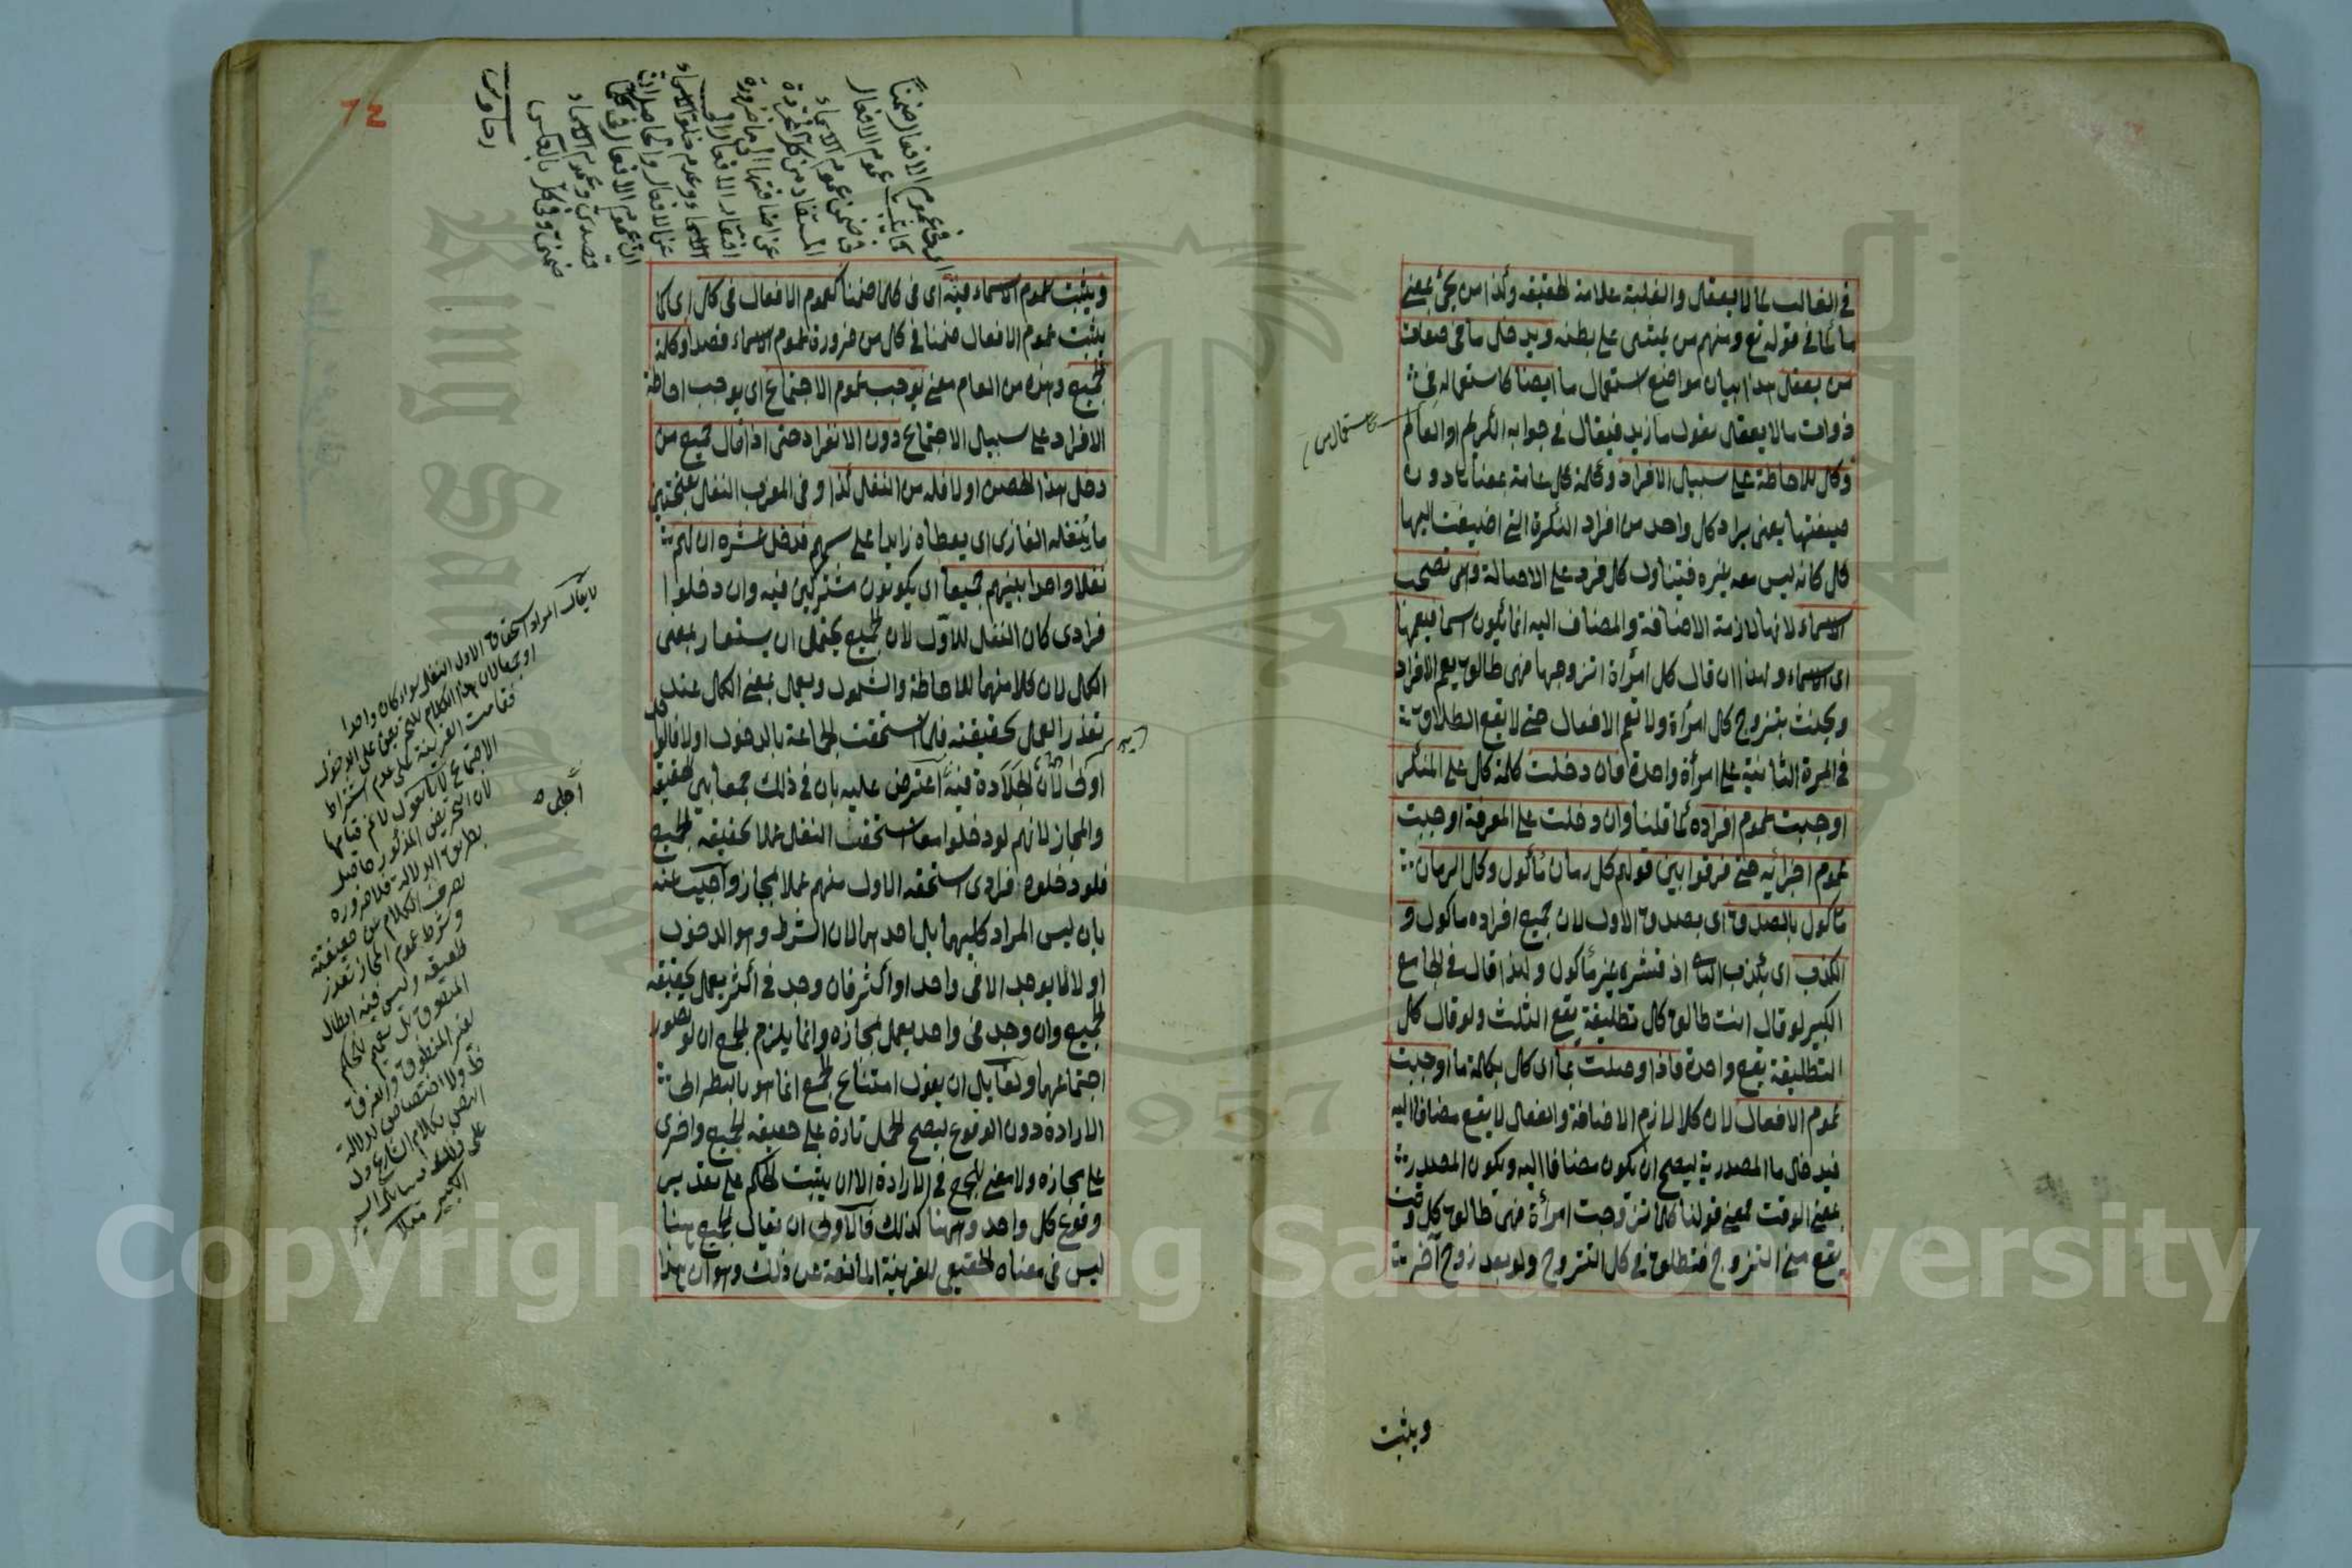 في الغالب لما لا يعقل والغلبة علامة الحقيقة وكذا من يجئ بمعنى
ما كما في قوله تع ومنهم من يمشى على بطنه ويدخل ما في صفات
من يعقل هذا بيان مواضع استعمال ما ايضا كاستعماله في
ذوات ما لا يعقل يقول ما زيد فيقال في جوابه الكريم او العالم
وكل للاحاطة على سبيل الافراد وكلمة كل عامة بمعناها دون
صيغتها يعنى يراد كل واحد من افراد النكرة التي اضيفت اليها
كل كانه ليس معه غيره فيتناول كل فرد على الاصالة وهي تصحب
الاسماء لانها لازمة الاضافة والمضاف اليه انما يكون اسما فيعمها
اى الاسماء ولهذا ان قال كل امرأة اتزوجها فهى طالق يعم الافراد
ويحنث بتزوج كل امرأة ولا تعم الافعال حتى لا يقع الطلاق
في المرة الثانية على امرأة واحدة فان دخلت كلمة كل على المنكر
اوجبت عموم افراده كما قلنا وان دخلت على المعرفة اوجبت
عموم اجزائه حتى فرقوا بين قولهم كل رمان مأكول وكل الرمان
مأكول بالصدق اى بصدق الاول لان جميع افراده مأكول و
الكذب اى بكذب الثانى اذ قشره غير مأكول ولهذا قال في الجامع
الكبير لو قال انت طالق كل تطليقة يقع الثلث ولو قال كل
التطليقة يقع واحدة فاذا وصلت بما اى كل بكلمة ما اوجبت
عموم الافعال لان كلا لازم الاضافة والفعل لا يقع مضافا اليه
فيدخل ما المصدرية ليصح ان يكون مضافا اليه ويكون المصدر
بمعنى الوقت فمعنى قولنا كلما تزوجت امرأة فهى طالق كل وقت
يقع منى التزوج فتطلق في كل التزوج ولو بعد زوج آخر
ويثبت
ويثبت عموم الاسماء فيه اى في كلما ضمنا كعموم الافعال في كل اى كما
يثبت عموم الافعال ضمنا في كل من ضرورة عموم الاسماء قصدا وكلمة
الجميع وهذه من العام معنى توجب عموم الاجتماع اى يوجب احاطة
الافراد على سبيل الاجتماع دون الانفراد حتى اذا قال جميع من
دخل هذا الحصن اولا فله من النفل كذا وفى المغرب النفل بفتحتين
ما ينفله الغازى اى يعطاه زايدا على سهمه فدخل عشرة ان لهم
نفلا واحدا بينهم جميعا اى يكونون مشتركين فيه وان دخلوا
فرادى كان النفل للاول لان الجميع يحتمل ان يستعار بمعنى
الكل لان كلا منهما للاحاطة والشمول ويعمل بمعنى الكل عند
تعذر العمل بحقيقته فلما استحقت الجماعة بالدخول اولا فالواحد
اولى لان الجلادة فيه اعترض عليه بان في ذلك جمعا بين الحقيقة
والمجاز لانهم لو دخلوا معا استحقت النفل عملا بحقيقة الجميع
فلو دخلوه فرادى استحقه الاول منهم عملا بمجازه واجيب عنه
بان ليس المراد كليهما بل احدهما لان الشرط وهو الدخول
اولا لما يوجد الا في واحد او اكثر فان وجد في اكثر يعمل بحقيقة
الجميع وان وجد في واحد يعمل بمجازه وانما يلزم الجمع ان لو تصور
اجتماعهما ولقايل ان يقول امتناع الجمع انما هو بالنظر الى
الارادة دون الوقوع ليصح الحمل تارة على حقيقة الجميع واخرى
على مجازه ولا معنى للجمع في الارادة الا ان يثبت الحكم على تقدير
وقوع كل واحد وههنا كذلك فالاولى ان يقال الجميع ههنا
ليس في معناه الحقيقى للقرينة المانعة عن ذلك وهو ان هذا
اى في عموم الافعال ضمنا
كما يثبت عموم الافعال
في ضمن عموم الاسماء
رهاوى
72
لا يقال المراد استحقاق الاول النفل سواء كان واحدا
او جمعا لان هذا الكلام للتحريض على الدخول